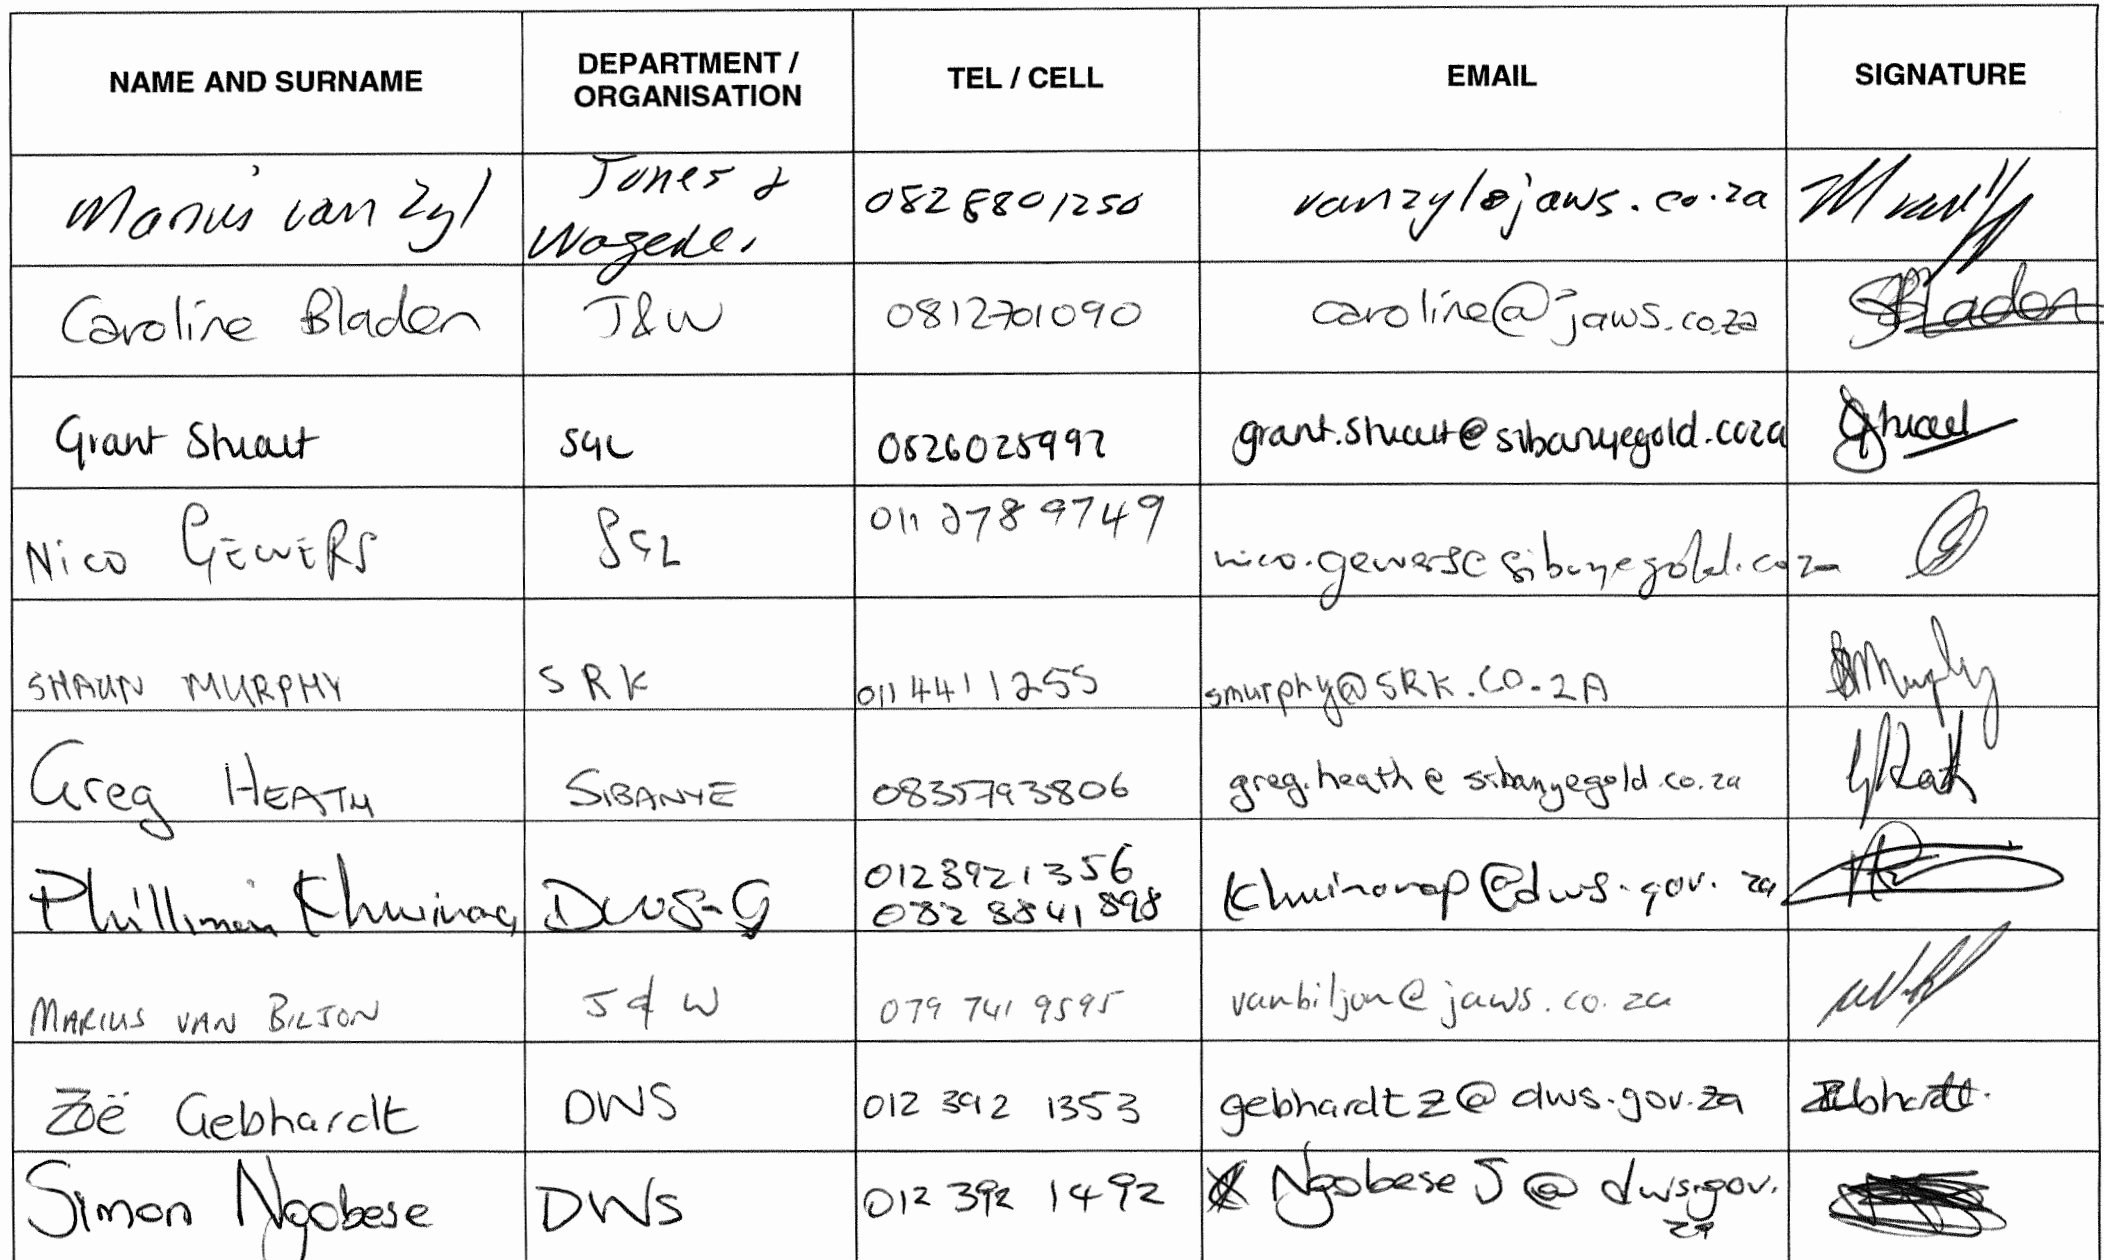 NAME AND SURNAME DEPARTMENT / ORGANISATION TEL / CELL EMAIL SIGNATURE
Marius van Zyl Jones & Wagener 082 8801250 vanzyl@jaws.co.za
Caroline Bladen J&W 0812701090 caroline@jaws.co.za Bladen
Grant Stuart SGL 0826025992 grant.stuart@sibanyegold.coza
Nico GEWERS SGL 011 278 9749 nico.gewers@sibanyegold.co.za
SHAUN MURPHY SRK 011 441 1255 smurphy@SRK.CO.ZA SMurphy
Greg HEATH SIBANYE 0835793806 greg.heath@sibanyegold.co.za
Phillimon Khwinana DWS-G 0123921356 khwinanap@dws.gov.za
082 8841 898
MARIUS VAN BILJON J & W 079 741 9595 vanbiljon@jaws.co.za
Zoë Gebhardt DWS 012 392 1353 gebhardtZ@dws.gov.za
Simon Ngobese DWS 012 392 1492 NgobeseJ@dws.gov.
za